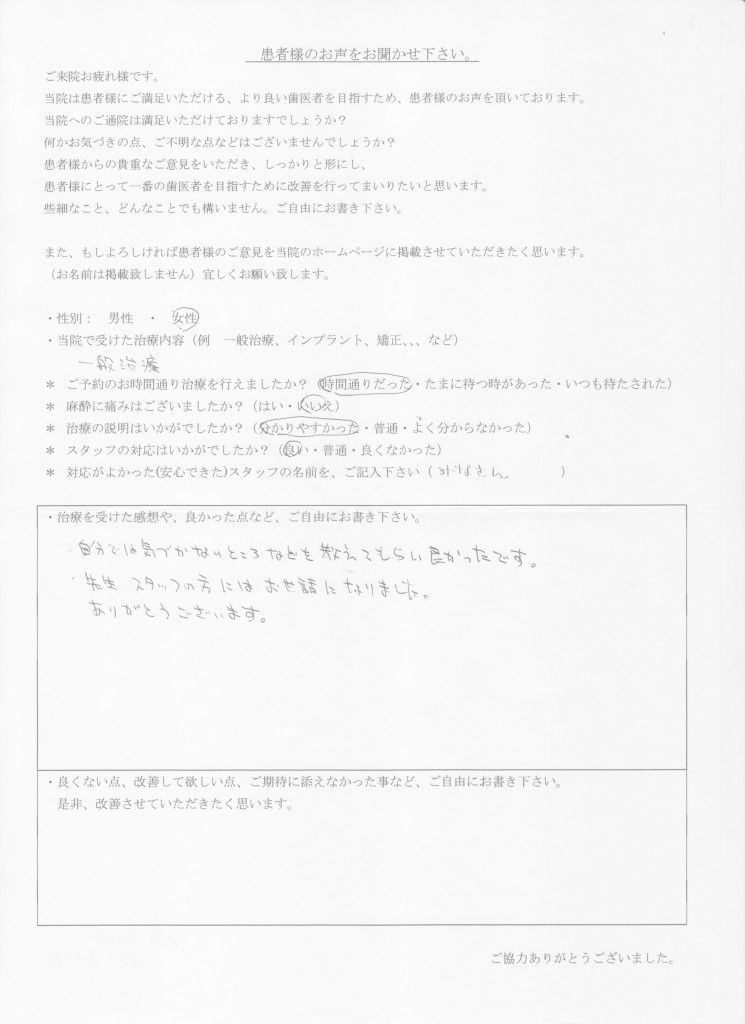 患者様のお声をお聞かせ下さい。
ご来院お疲れ様です。
当院は患者様にご満足いただける、より良い歯医者を目指すため、患者様のお声を頂いております。
当院へのご通院は満足いただけておりますでしょうか？
何かお気づきの点、ご不明な点などはございませんでしょうか？
患者様からの貴重なご意見をいただき、しっかりと形にし、
患者様にとって一番の歯医者を目指すために改善を行ってまいりたいと思います。
些細なこと、どんなことでも構いません。ご自由にお書き下さい。
また、もしよろしければ患者様のご意見を当院のホームページに掲載させていただきたく思います。
（お名前は掲載致しません）宜しくお願い致します。
・性別： 男性 ・ 女性
・当院で受けた治療内容（例　一般治療、インプラント、矯正、、、など）
一般治療
＊ ご予約のお時間通り治療を行えましたか？（時間通りだった・たまに待つ時があった・いつも待たされた）
＊ 麻酔に痛みはございましたか？（はい・いいえ）
＊ 治療の説明はいかがでしたか？（分かりやすかった・普通・よく分からなかった）
＊ スタッフの対応はいかがでしたか？（良い・普通・良くなかった）
＊ 対応がよかった(安心できた)スタッフの名前を、ご記入下さい（ みなさん ）
・治療を受けた感想や、良かった点など、ご自由にお書き下さい。
・自分では気づかないところなどを教えてもらい良かったです。
・先生 スタッフの方にはお世話になりました。
ありがとうございます。
・良くない点、改善して欲しい点、ご期待に添えなかった事など、ご自由にお書き下さい。
是非、改善させていただきたく思います。
ご協力ありがとうございました。